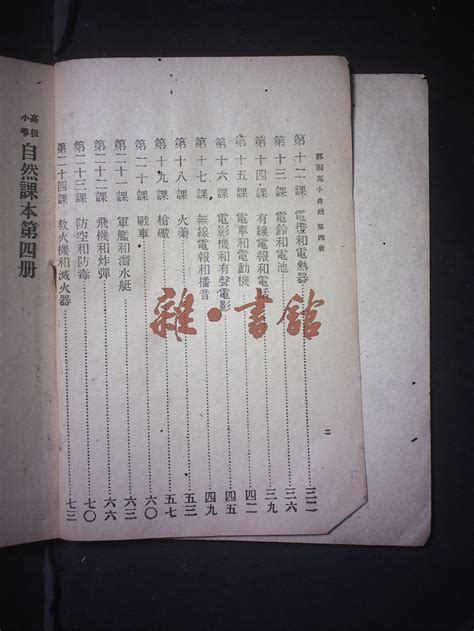 高小自然 第四册
二
第十二課 電燈和電熱器 三二
第十三課 電鈴和電池 三六
第十四課 有線電報和電話 三九
第十五課 電車和電動機 四二
第十六課 電影機和有聲電影 四五
第十七課 無線電報和播音 四九
第十八課 火藥 五三
第十九課 槍礮 五七
第二十課 戰車 六〇
第二十一課 軍艦和潛水艇 六三
第二十二課 飛機和炸彈 六六
第二十三課 防空和防毒 七〇
第二十四課 救火機和滅火器 七三
高級小學 自然課本第四册
雜·書館